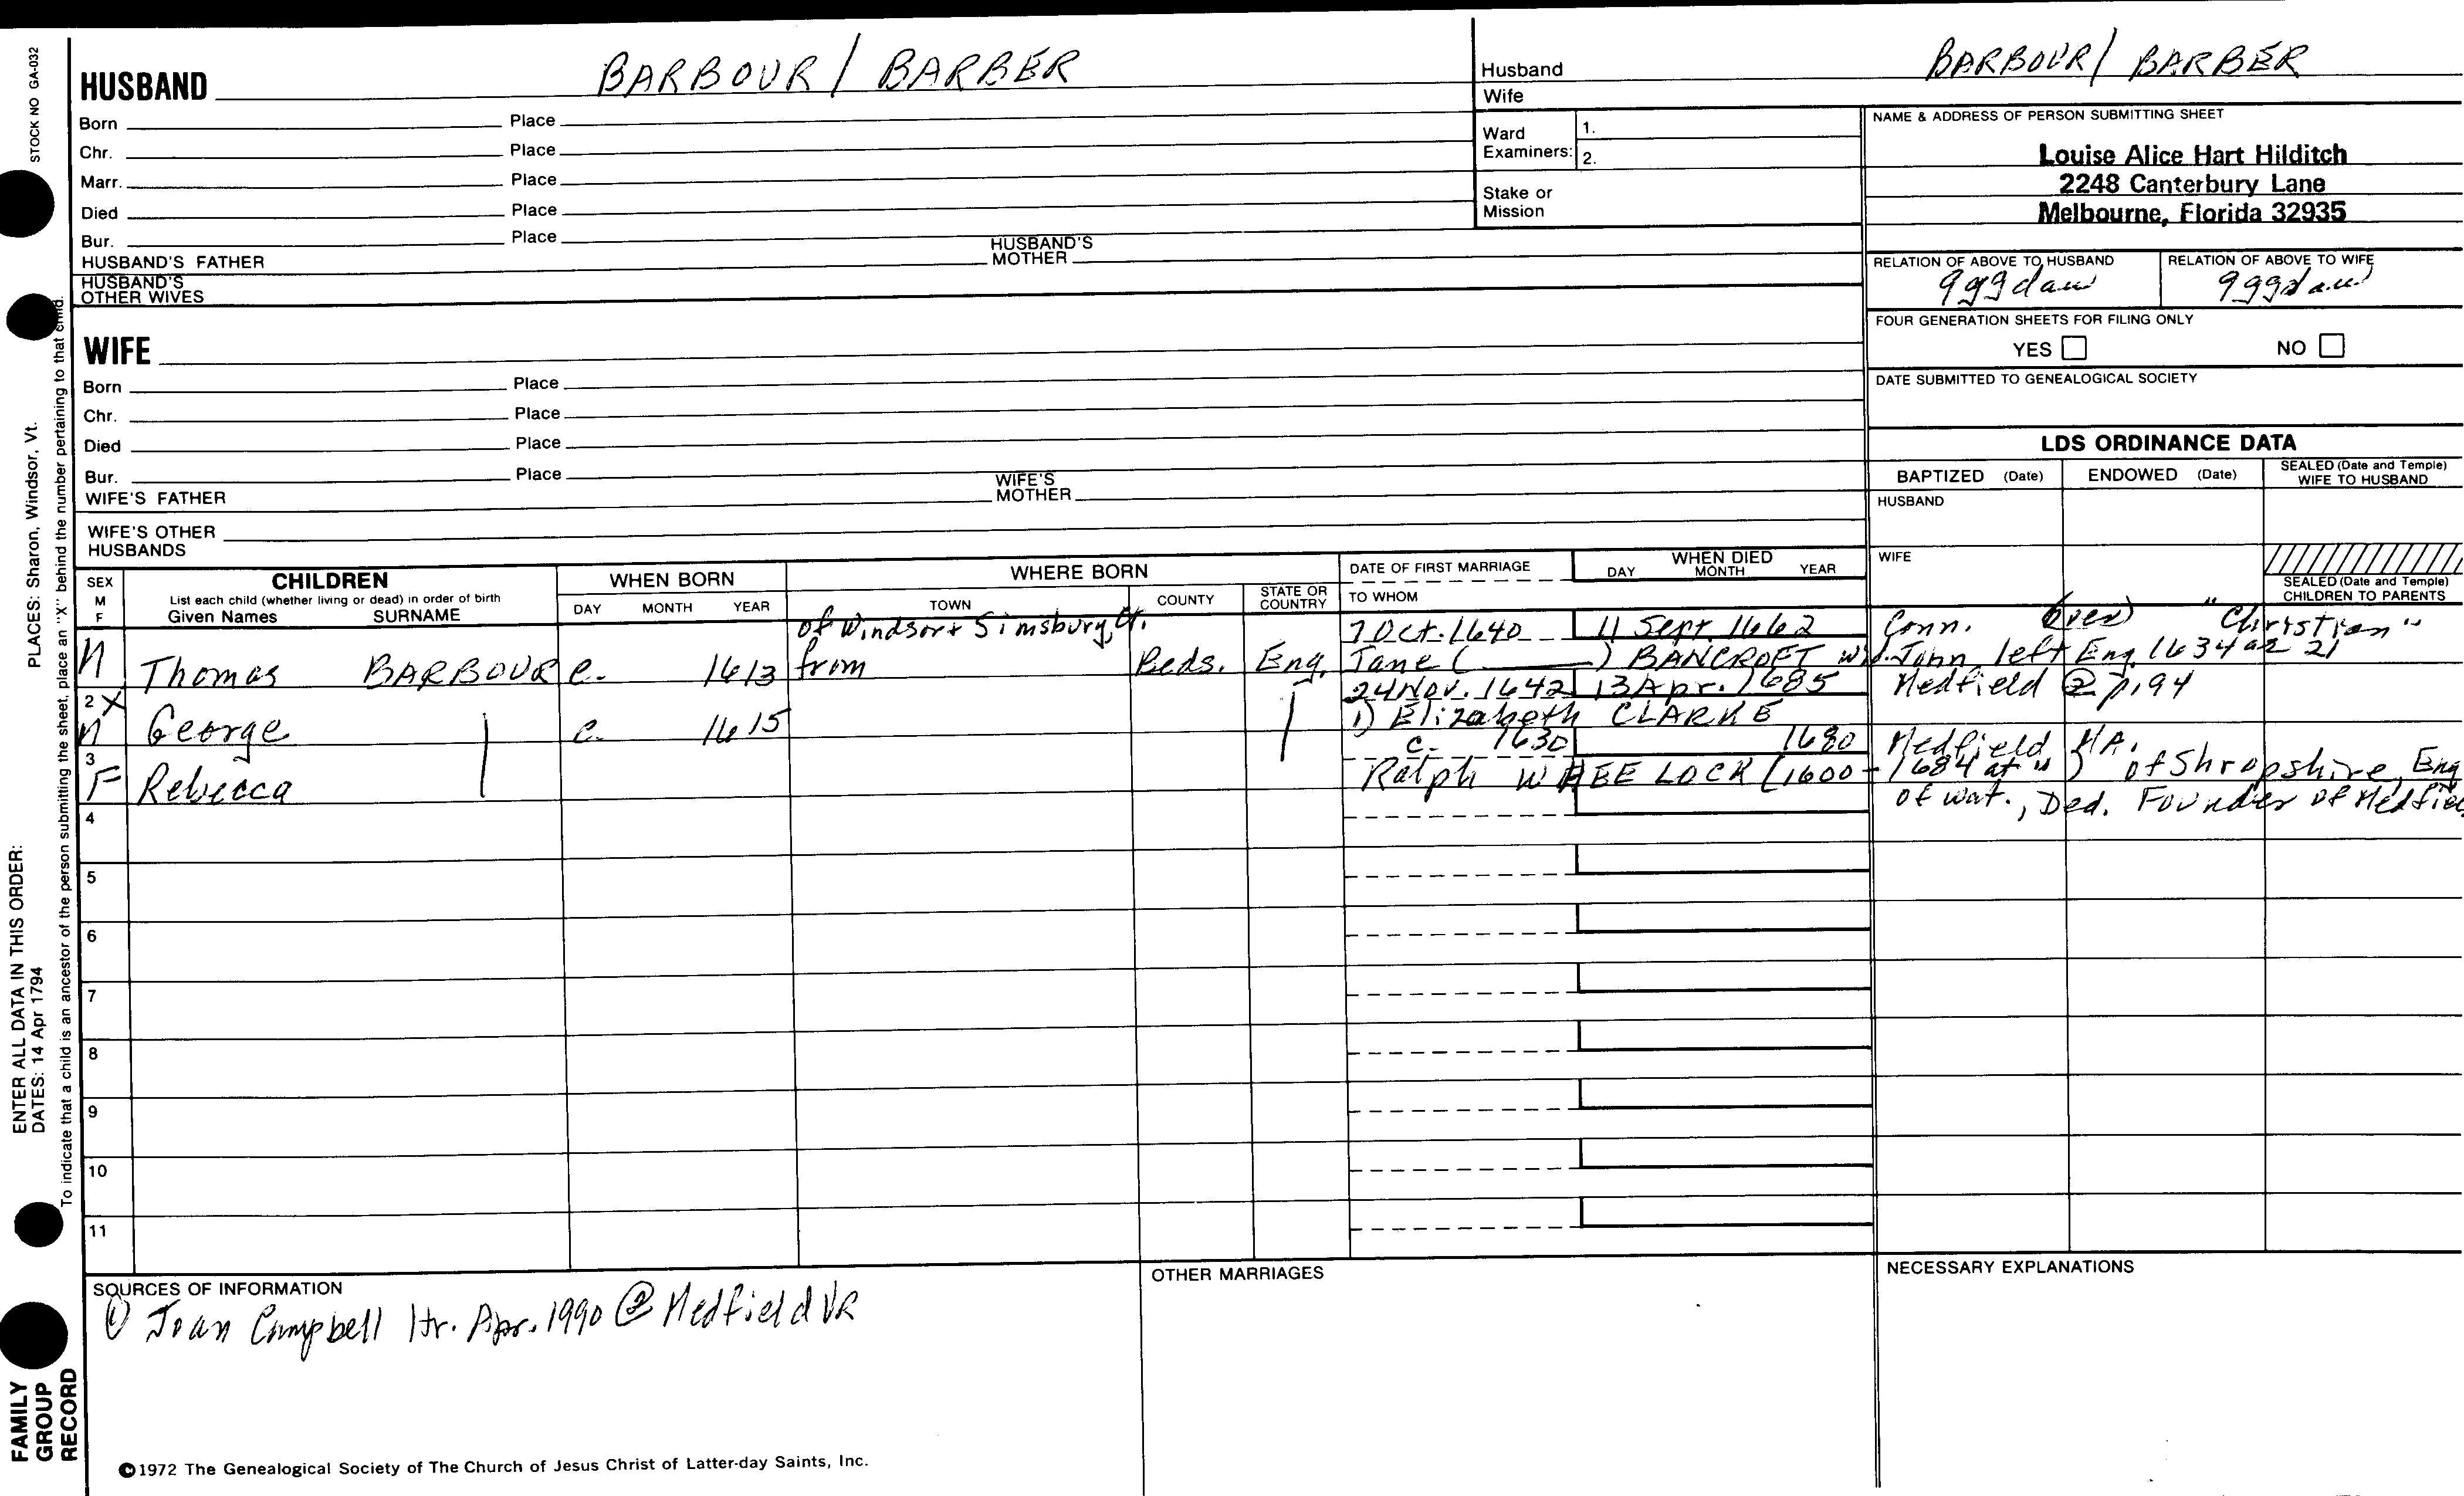 STOCK NO GA-032
HUSBAND BARBOUR / BARBER
Born Place
Chr. Place
Marr. Place
Died Place
Bur. Place
HUSBAND'S FATHER
HUSBAND'S MOTHER
HUSBAND'S OTHER WIVES
WIFE
Born Place
Chr. Place
Died Place
Bur. Place
WIFE'S FATHER
WIFE'S MOTHER
WIFE'S OTHER HUSBANDS
Husband BARBOUR / BARBER
Wife
Ward Examiners: 1.
2.
Stake or Mission
NAME & ADDRESS OF PERSON SUBMITTING SHEET
Louise Alice Hart Hilditch
2248 Canterbury Lane
Melbourne, Florida 32935
RELATION OF ABOVE TO HUSBAND
gggdau
RELATION OF ABOVE TO WIFE
gggdau
FOUR GENERATION SHEETS FOR FILING ONLY
YES NO
DATE SUBMITTED TO GENEALOGICAL SOCIETY
LDS ORDINANCE DATA
BAPTIZED (Date) ENDOWED (Date) SEALED (Date and Temple) WIFE TO HUSBAND
HUSBAND
WIFE
SEALED (Date and Temple) CHILDREN TO PARENTS
SEX M F
CHILDREN
List each child (whether living or dead) in order of birth
Given Names SURNAME
WHEN BORN
DAY MONTH YEAR
WHERE BORN
TOWN COUNTY STATE OR COUNTRY
DATE OF FIRST MARRIAGE
TO WHOM
WHEN DIED
DAY MONTH YEAR
of Windsor + Simsbury, Ct. 7 Oct. 1640 11 Sept. 1662 Conn. (over) "Christian"
M Thomas BARBOUR c. 1613 from Beds. Eng. Jane ( ) BANCROFT wid. John left Eng. 1634 ae 21
2 X 24 Nov. 1642 13 Apr. 1685 Medfield ② p. 194
M George c. 1615 1) Elizabeth CLARKE
3 c. 1630 1680 Medfield, MA.
F Rebecca Ralph WHEELOCK (1600-1684 at ") of Shropshire, Eng
4 of Wat., Ded. Founder of Medfield
5
6
7
8
9
10
11
SOURCES OF INFORMATION
① Joan Campbell ltr. Apr. 1990 ② Medfield VR
OTHER MARRIAGES
NECESSARY EXPLANATIONS
©1972 The Genealogical Society of The Church of Jesus Christ of Latter-day Saints, Inc.
PLACES: Sharon, Windsor, Vt.
To indicate that a child is an ancestor of the person submitting the sheet, place an "X" behind the number pertaining to that child.
ENTER ALL DATA IN THIS ORDER:
DATES: 14 Apr 1794
FAMILY GROUP RECORD